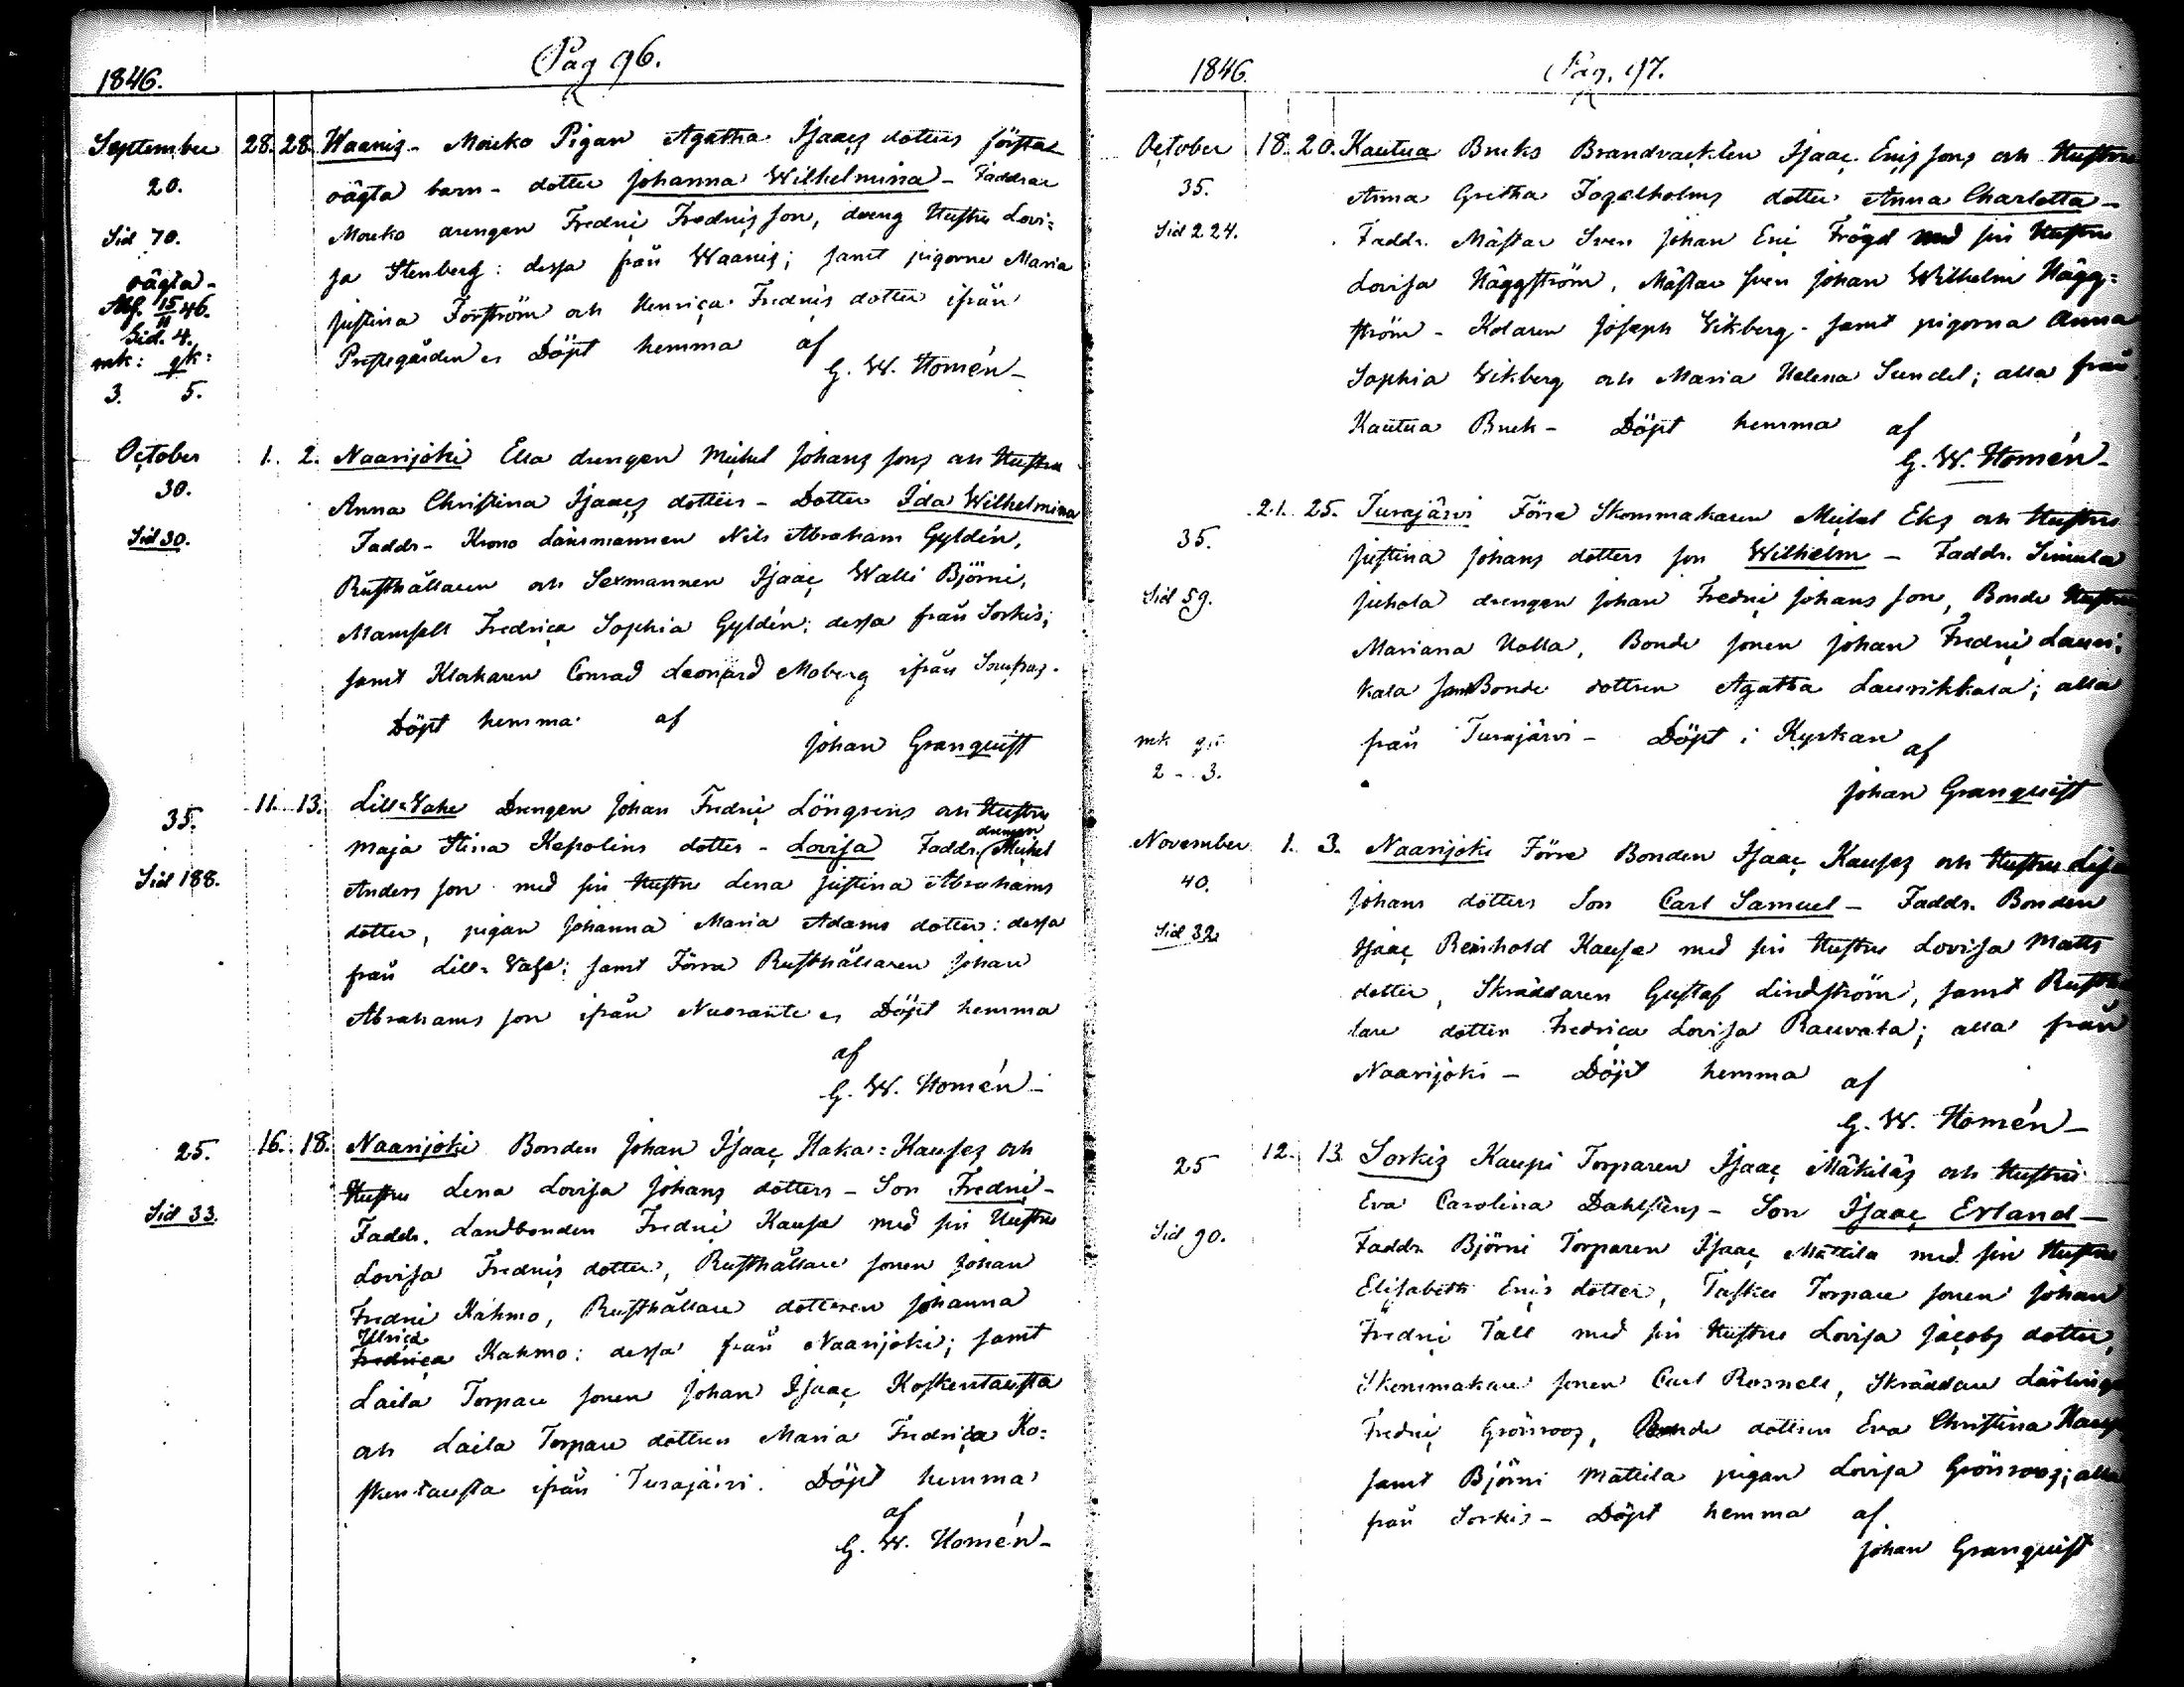 Pag 96.
1846.
September 28. 28. Waanis - Mouko Pigan Agatha Isaacs dotters första
20. oägta barn - dotter Johanna Wilhelmina - Faddrar
Sid 70. Mouko drengen Fredric Fredrics son, dreng Hustru Lovi=
oägta - sa Stenberg: dessa från Waanis; samt pigorne Maria
15/11 46. Justina Forström och Henrica Fredrics dotter ifrån
Sid. 4. Prestgården es Döpt hemma af
mk: qk: G. W. Homén -
3. 5.
October 1. 2. Naarijoki Ella drengen Michel Johans sons och Hustru
30. Anna Christina Isaacs dotters - Dotter Ida Wilhelmina
Sid 30. Faddr - Krono Länsmannen Nils Abraham Gyldén,
Rusthållaren och Sexmannen Isaac Walli Björni,
Mamsell Fredrica Sophia Gyldén: dessa från Sorkis;
samt Klokaren Conrad Leonard Moberg ifrån
Döpt hemma af
Johan Granquist
35. 11. 13. Lill=Vahe Drengen Johan Fredric Löngrens och Hustru
drengen
Maja Stina Kepolins dotter - Lovisa Faddr. Michel
Sid 188. Anders son med sin Hustru Lena Justina Abrahams
dotter, pigan Johanna Maria Adams dotter: dessa
från Lill=Vahe; samt Förra Rusthållaren Johan
Abrahams son ifrån es Döpt hemma
af
G. W. Homén -
25. 16. 18. Naarijoki Bonden Johan Isaac Haka=Kauses och
Hustru Lena Lovisa Johans dotters - Son Fredric -
Sid 33. Faddr. Landbonden Fredric Kausa med sin Hustru
Lovisa Fredrics dotter, Rusthållare sonen Johan
Fredric Kahmo, Rusthållare dotteren Johanna
Ulrica
Fredrica Kahmo: dessa från Naarijoki; samt
Laila Torpare sonen Johan Isaac Koskentausta
och Laila Torpare dottren Maria Fredrica Ko=
skentausta ifrån Turajärvi. Döpt hemma
af
G. W. Homén -
1846. Pag. 97.
October 18. 20. Kautua Bruks Brandvackten Isaac Erics sons och Hustru
35. Anna Gretha Fogelholms dotter Anna Charlotta -
Sid 224. Faddr. Mästar Sven Johan Eric Frögd med sin Hustru
Lovisa Häggström, Mästar Sven Johan Wilhelm Hägg=
ström - Kolaren Joseph Wikberg - samt pigorna Anna
Sophia Wikberg och Maria Helena Sundel; alla från
Kautua Bruk - Döpt hemma af
G. W. Homén -
21. 25. Turajärvi Förre Skommakaren Michel Eks och Hustru
35. Justina Johans dotters son Wilhelm - Faddr. Simula
Sid 59. Juhola drengen Johan Fredric Johans son, Bonde Hustru
Mariana Kalla, Bonde sonen Johan Fredric Lauri=
kala samt Bonde dottren Agatha Laurikkala; alla
mk från Turajärvi - Döpt i Kyrkan af
2 - 3.
Johan Granquist
November 1. 3. Naarijoki Förre Bonden Isaac Kauses och Hustru Lisa
40. Johans dotters Son Carl Samuel - Faddr. Bonden
Sid 32 Isaac Reinhold Kausa med sin Hustru Lovisa Matts
dotter, Skräddaren Gustaf Lindström, samt
lare dottren Fredrica Lovisa Rauvata; alla från
Naarijoki - Döpt hemma af
G. W. Homén -
25 12. 13 Sorkis Kaupi Torparen Isaac Mäkiläs och Hustru
Eva Carolina Dahlstens - Son Isaac Erland -
Sid 90. Faddr Björni Torparen Isaac Mattila med sin Hustru
Elisabeth Erics dotter, Tasku Torpare sonen Johan
Fredric Tall med sin Hustru Lovisa Jacobs dotter,
Skommakare sonen Carl Rosnell, Skräddare Lärlinge
Fredric Grönroos, Bonde dottren Eva Christina
samt Björni Mattila pigan Lovisa Grönroos; alla
från Sorkis - Döpt hemma af
Johan Granquist